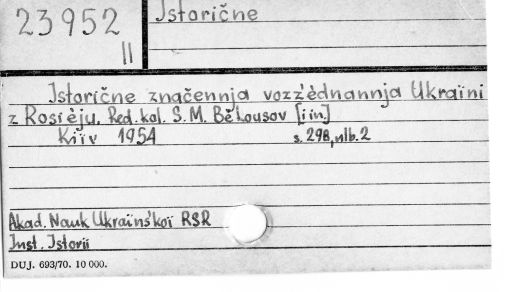 23952
II
Istorične
Istorične značennja vozz'èdnannja Ukraïni
z Rosièju. Red. kol. S.M. Bělousov [i in.]
Kiïv 1954 s. 298, nlb. 2
Akad. Nauk Ukraïns'koï RSR
Inst. Istorii
DUJ. 693/70. 10 000.